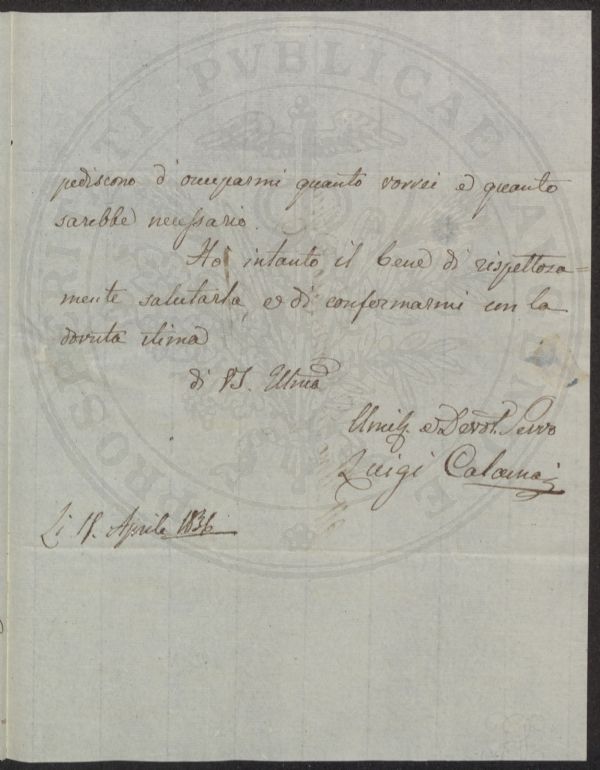 pediscono d'occuparmi quanto vorrei ed quanto
sarebbe necessario.
Ho intanto il bene di rispettosa=
mente salutarla, e di confermarmi con la
dovuta stima
di VS. Illma
Umil. e Devot. Servo
Luigi Calamai
Li Aprile 1836
PROSPERITATI PVBLICAE